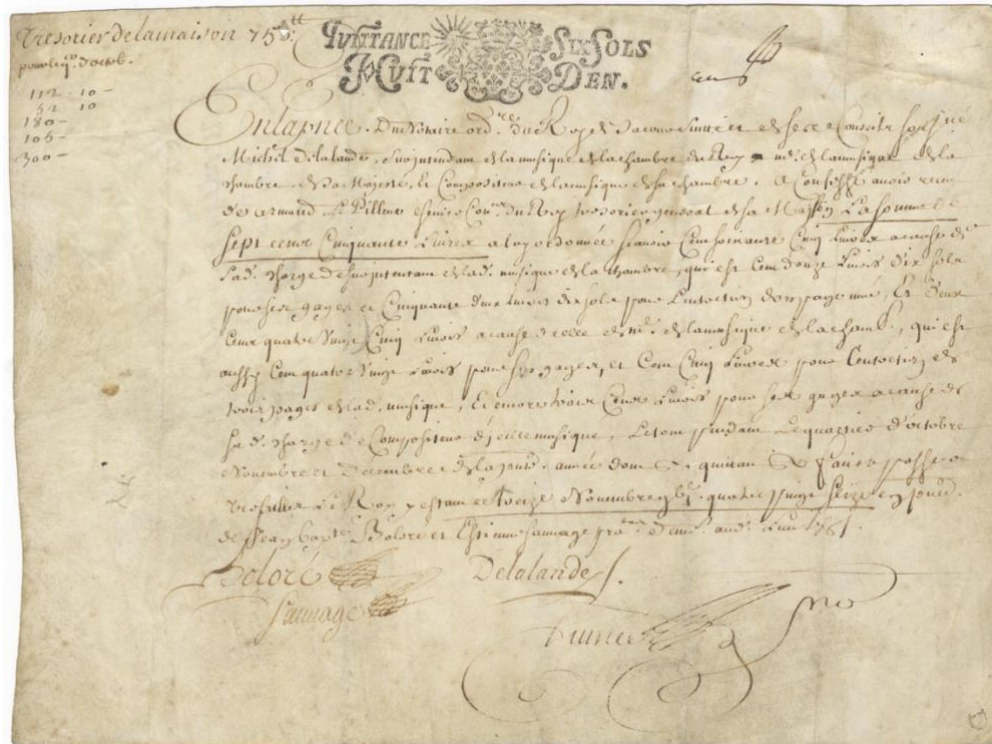 Tresorier de lamaison 750 tt
pour le qr d'octob.
112 - 10 -
52 10
180 -
105 -
300 -
QUITTANCE SIX SOLS
HUIT DEN.
En la pnce. Du Notaire ord.re du Roy
Michel delalande, Surjntendant de la musique de la chambre du Roy de la musique de la
chambre de Sa Majesté, Et Compositeur de la musique de sa chambre. A Confessé avoir receu
de Conr. du Roy tresorier general de sa La somme de
Sept cens Cinquante Livres a luy ordonnée Scavoir Cent soixante Cinq Livres a cause de
sad. charge de Surjntendant de lad. musique de la chambre, qui est Cent douze Livres dix sols
pour ses gages et Cinquante deux Livres dix sols pour L'entretien d'un page mué, Et Deux
Cens quatre Vingt Cinq Livres a cause de celle de de la musique de la chamb., qui est
aussy Cent quatre Vingt Livres pour ses gages, et Cent Cinq Livres pour L'entretien de
trois pages de lad. musique, Et encore trois Cens Livres pour ses gages a cause de
sad. charge de Compositeur d'jcelle musique, Le tout pendant Le quartier d'octobre
Novembre et Decembre de la année dont quittant
treize Novembre quatre vingt seize
de Jean bapte. Belore et Estienne Sauvage
Belore Delalande
Sauvage